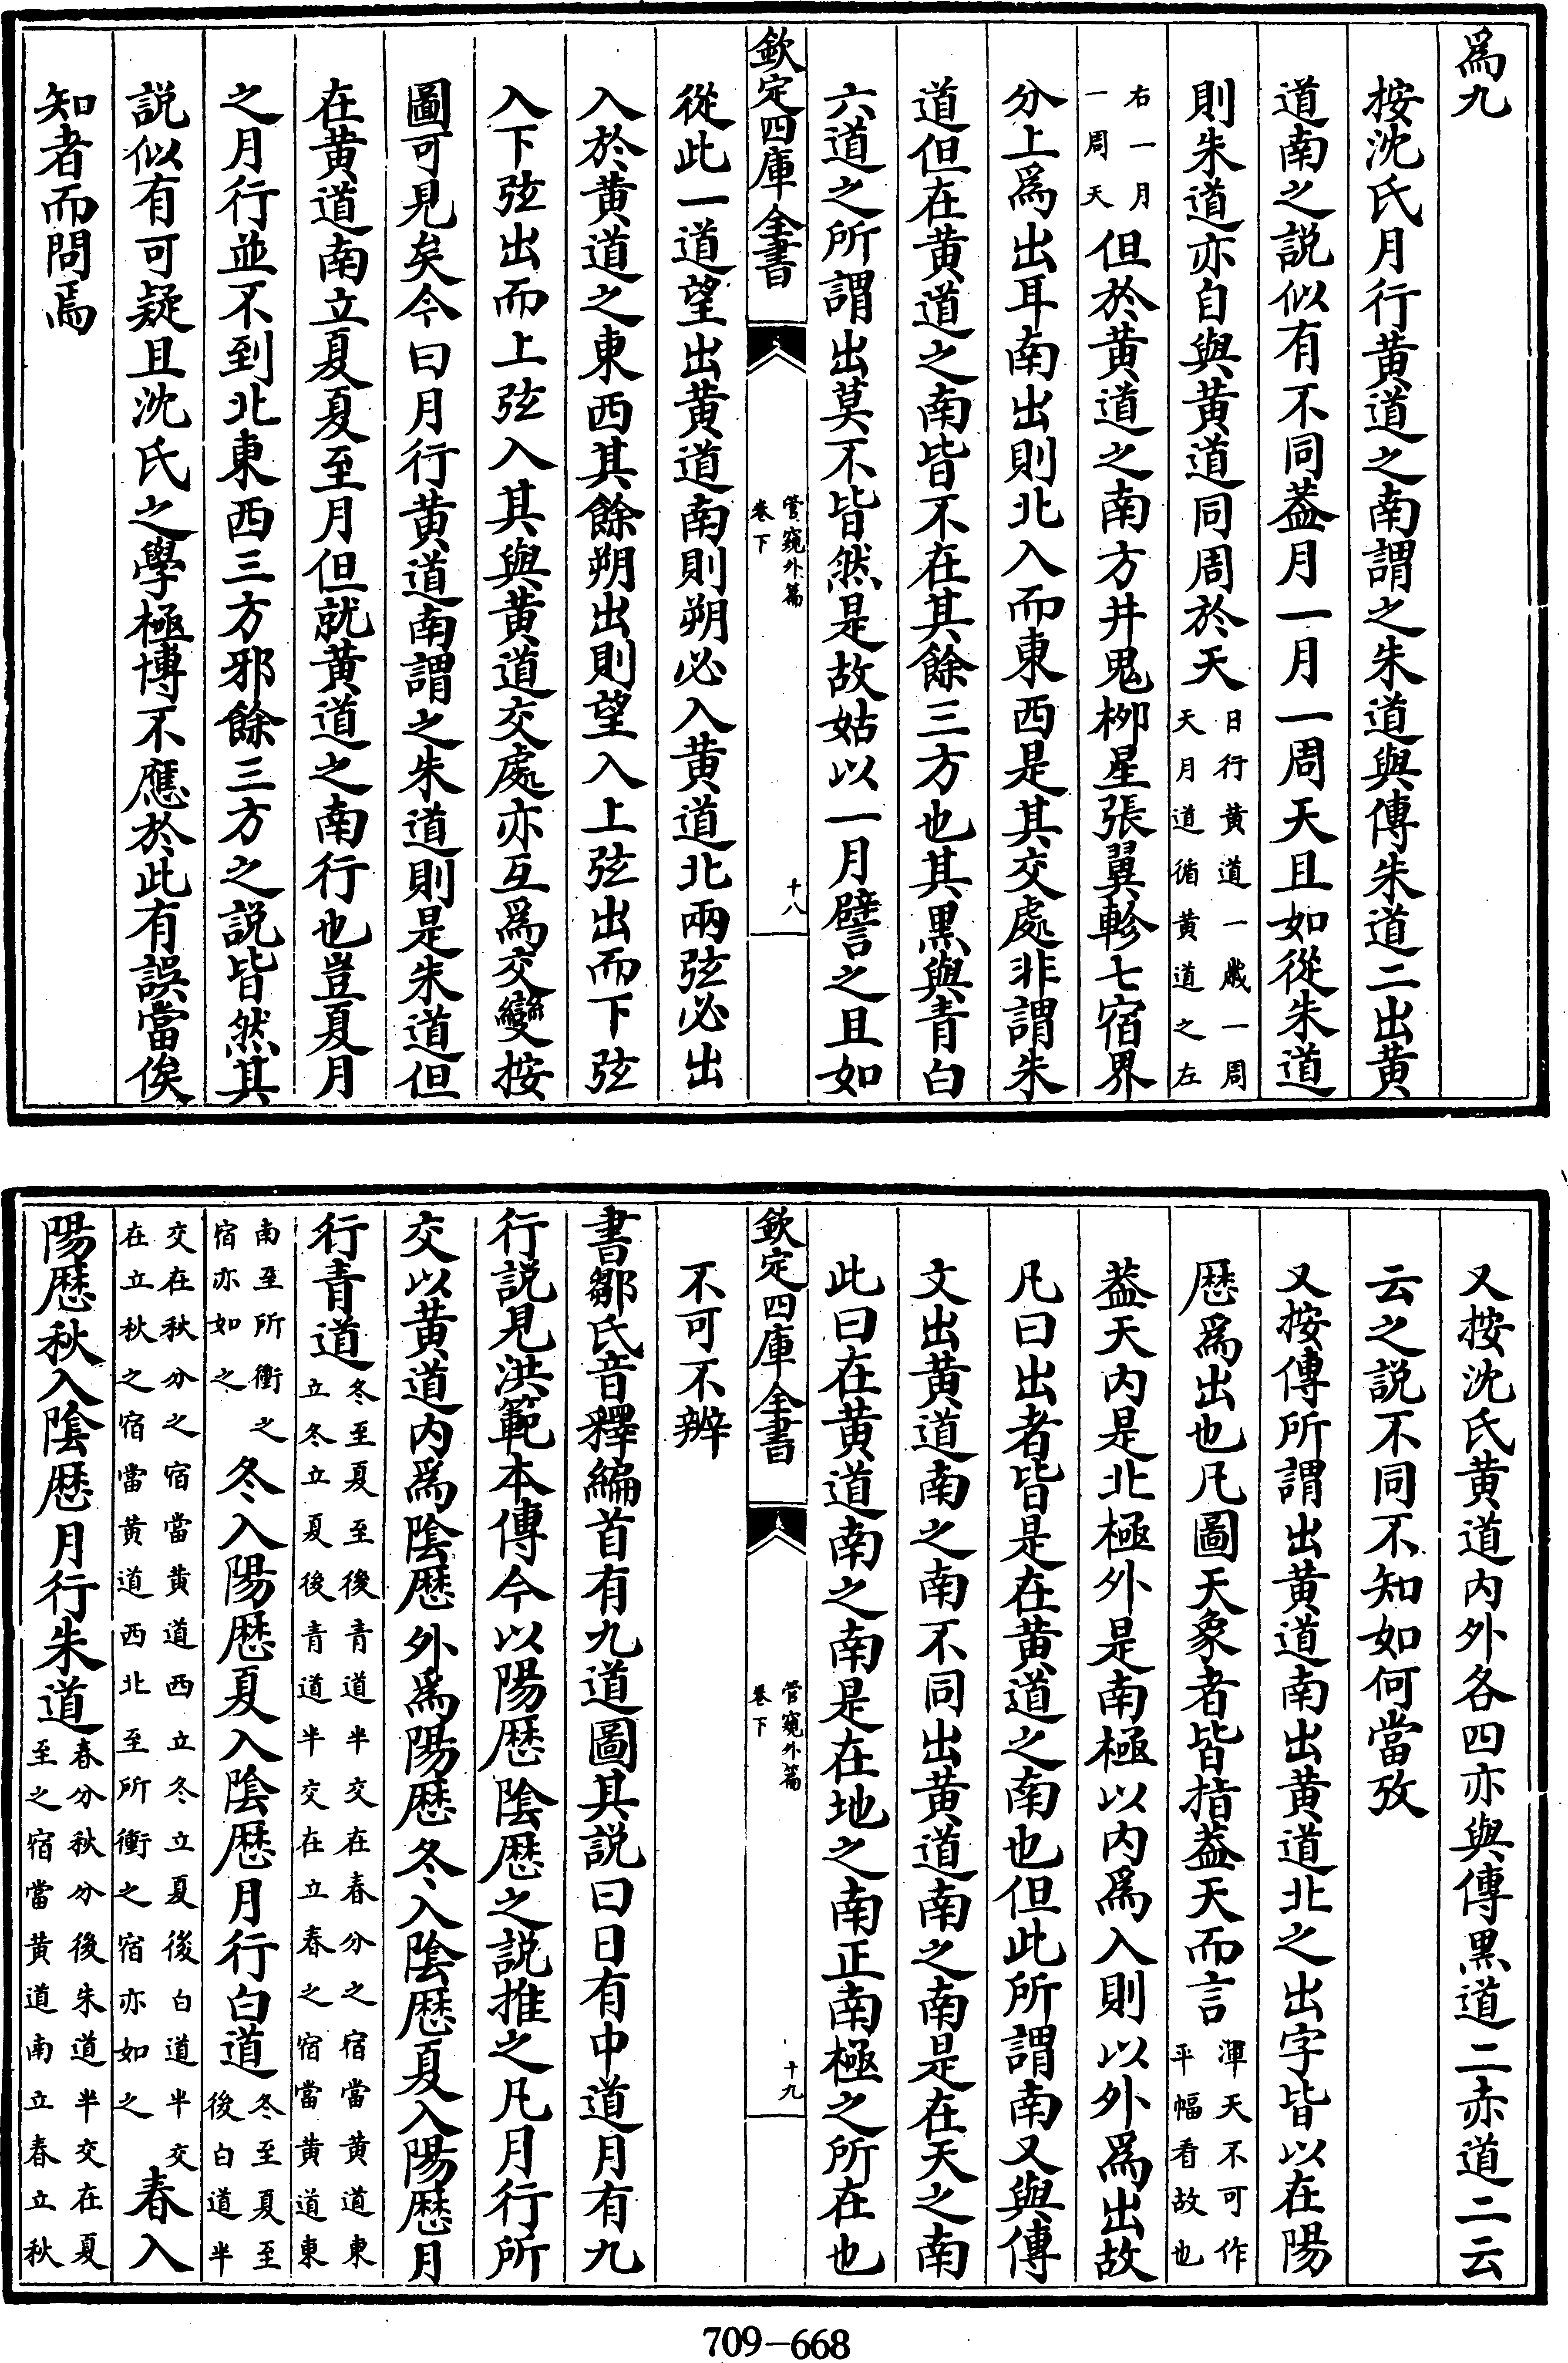 爲九
按沈氏月行黄道之南謂之朱道與傳朱道二出黄
道南之説似有不同葢月一月一周天且如從朱道
則朱道亦自與黄道同周於天日行黄道一歲一周天月道循黄道之左
右一月一周天但於黄道之南方井鬼栁星張翼軫七宿界
分上爲出耳南出則北入而東西是其交處非謂朱
道但在黄道之南皆不在其餘三方也其黒與青白
六道之所謂出莫不皆然是故姑以一月譬之且如
欽定四庫全書
管窺外篇
卷下
十八
從此一道望出黄道南則朔必入黄道北兩弦必出
入於黄道之東西其餘朔出則望入上弦出而下弦
入下弦出而上弦入其與黄道交處亦互爲交變按
圖可見矣今曰月行黄道南謂之朱道則是朱道但
在黄道南立夏夏至月但就黄道之南行也豈夏月
之月行並不到北東西三方邪餘三方之説皆然其
説似有可疑且沈氏之學極博不應於此有誤當俟
知者而問焉
又按沈氏黄道内外各四亦與傳黒道二赤道二云
云之説不同不知如何當攷
又按傳所謂出黄道南出黄道北之出字皆以在陽
厯爲出也凡圖天象者皆指葢天而言渾天不可作平幅看故也
葢天内是北極外是南極以内爲入則以外爲出故
凡曰出者皆是在黄道之南也但此所謂南又與傳
文出黄道南之南不同出黄道南之南是在天之南
此曰在黄道南之南是在地之南正南極之所在也
欽定四庫全書
管窺外篇
卷下
十九
不可不辨
書鄒氏音釋編首有九道圖其説曰日有中道月有九
行説見洪範本傳今以陽厯陰厯之説推之凡月行所
交以黄道内爲陰厯外爲陽厯冬入陰厯夏入陽厯月
行青道冬至夏至後青道半交在春分之宿當黄道東立冬立夏後青道半交在立春之宿當黄道東
南至所衝之宿亦如之冬入陽厯夏入陰厯月行白道冬至夏至後白道半
交在秋分之宿當黄道西立冬立夏後白道半交在立秋之宿當黄道西北至所衝之宿亦如之春入
陽厯秋入陰厯月行朱道春分秋分後朱道半交在夏至之宿當黄道南立春立秋
709-668